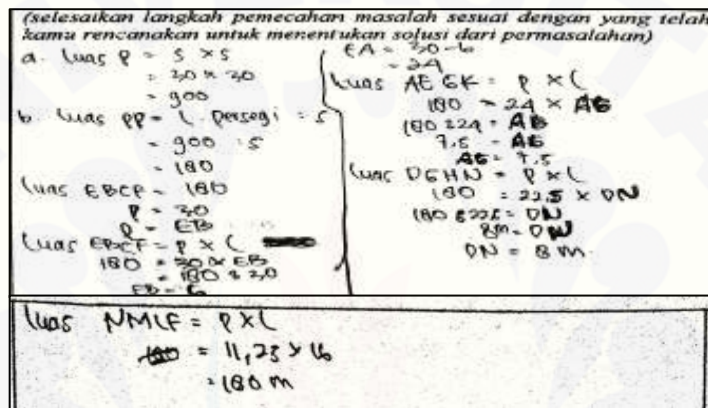 (selesaikan langkah pemecahan masalah sesuai dengan yang telah
kamu rencanakan untuk menentukan solusi dari permasalahan)
a. Luas P = s x s
= 30 x 30
= 900
b. Luas PP = L. persegi : 5
= 900 : 5
= 180
Luas EBCF = 180
P = 30
l = EB
Luas EBCF = P x l
180 = 30 x EB
= 180 : 30
EB = 6
EA = 30-6
= 24
Luas AEGK = P x l
180 = 24 x AG
180 : 24 = AG
7,5 = AG
AG = 7,5
Luas DGHN = P x l
180 = 22,5 x DN
180 : 22,5 = DN
8m = DN
DN = 8 m.
Luas NMLF = P x l
= 11,25 x 16
= 180 m